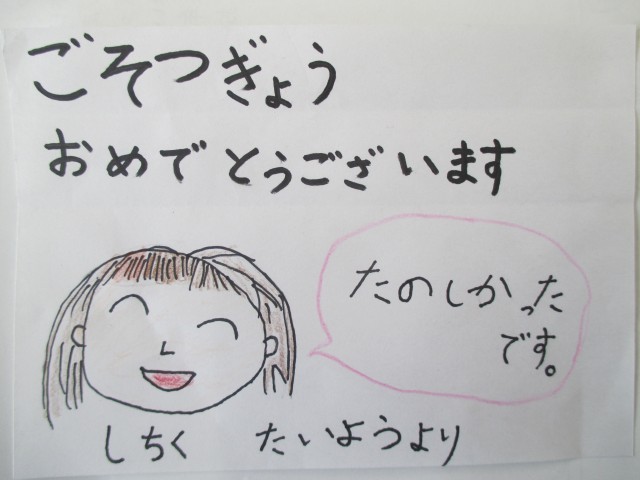 ごそつぎょう
おめでとうございます
たのしかった
です。
しちく　たいようより